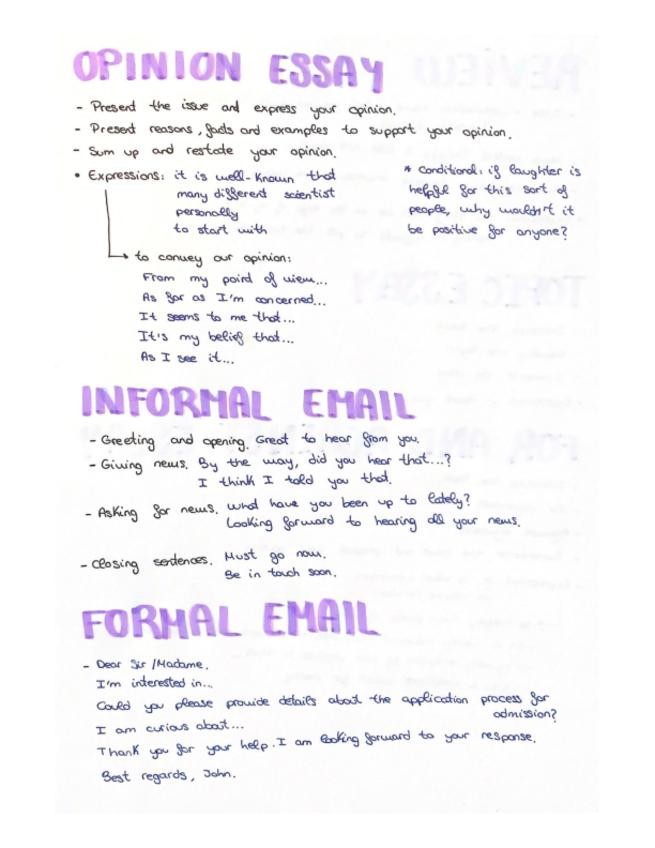 OPINION ESSAY
- Present the issue and express your opinion.
- Present reasons, facts and examples to support your opinion.
- Sum up and restate your opinion.
• Expressions: it is well-known that
many different scientist
personally
to start with
* Conditional: if laughter is
helpful for this sort of
people, why wouldn't it
be positive for anyone?
to convey our opinion:
From my point of view...
As far as I'm concerned...
It seems to me that...
It's my belief that...
As I see it...
INFORMAL EMAIL
- Greeting and opening. Great to hear from you.
- Giving news. By the way, did you hear that...?
I think I told you that.
- Asking for news. What have you been up to lately?
Looking forward to hearing all your news.
- Closing sentences. Must go now.
Be in touch soon.
FORMAL EMAIL
- Dear Sir /Madame.
I'm interested in...
Could you please provide details about the application process for
admission?
I am curious about...
Thank you for your help. I am looking forward to your response.
Best regards, John.